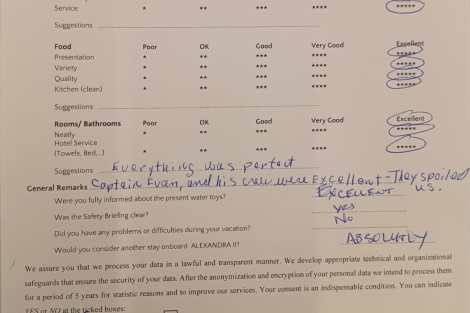 Service * ** *** **** *****
Suggestions
Food Poor OK Good Very Good Excellent
Presentation * ** *** **** *****
Variety * ** *** **** *****
Quality * ** *** **** *****
Kitchen (clean) * ** *** **** *****
Suggestions
Rooms/ Bathrooms Poor OK Good Very Good Excellent
Neatly * ** *** **** *****
Hotel Service
(Towels, Bed,..) * ** *** **** *****
Suggestions Everything was perfect
General Remarks Captain Evan, and his crew were Excellent - They spoiled us.
Were you fully informed about the present water toys? EXCELLENT
Was the Safety Briefing clear? yes
Did you have any problems or difficulties during your vacation? No
Would you consider another stay onboard ALEXANDRA II? ABSOLUTLY
We assure you that we process your data in a lawful and transparent manner. We develop appropriate technical and organizational
safeguards that ensure the security of your data. After the anonymization and encryption of your personal data we intend to process them
for a period of 5 years for statistic reasons and to improve our services. Your consent is an indispensable condition. You can indicate
YES or NO at the ticked boxes: